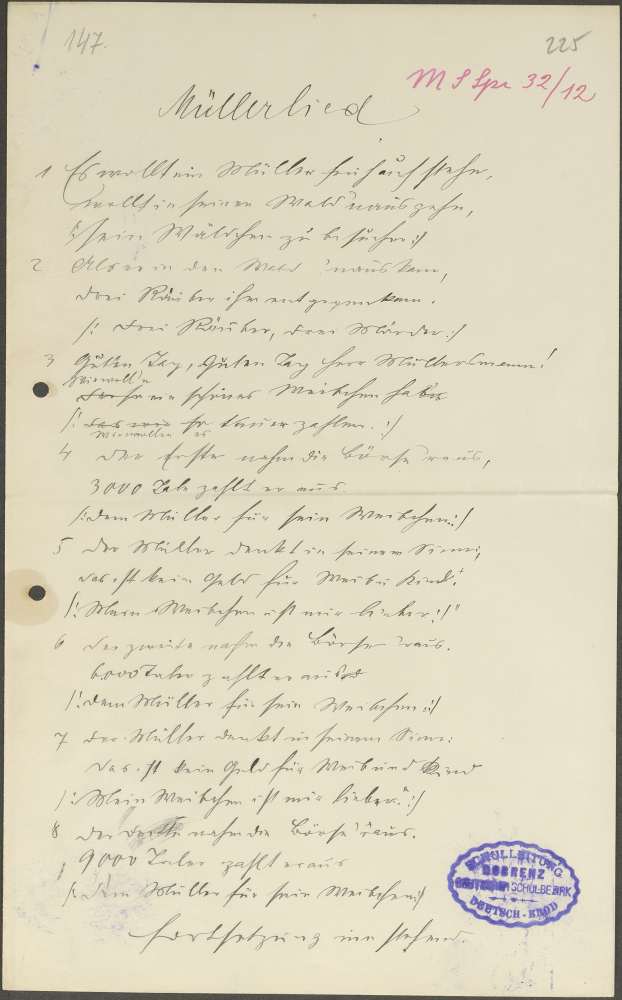 147.
225
M S Spr 32/12
Müllerlied
1 Es wollt ein Müller früh aufstehn,
wollt in seinen Wald 'nausgehn,
/: sein Wäldchen zu besuchen :/
2 Als er in den Wald 'nauskam,
drei Räuber ihm entgegenkam.
/: drei Räuber, drei Mörder :/
3 Guten Tag, Guten Tag Herr Müllersmann!
ein schönes Weibchen haben
teuer zahlen. :/
Wir wollen es
4 der Erste nahm die Börse raus,
3000 Taler zahlt er aus
/: dem Müller für sein Weibchen :/
5 der Müller denkt in seinem Sinn,
das ist kein Geld für Weib u Kind!
/: Mein Weibchen ist mir lieber :/"
6 der zweite nahm die Börse 'raus.
6000 Taler zahlt er aus
/: dem Müller für sein Weibchen :/
7 der Müller denkt in seinem Sinn:
das ist kein Geld für Weib und Kind
/: Mein Weibchen ist mir lieber." :/
8 der dritte nahm die Börse 'raus.
9000 Taler zahlt er aus
/: dem Müller für sein Weibchen :/
Fortsetzung
SCHULLEITUNG
DOBRENZ
SCHULBEZIRK
DEUTSCH-BROD